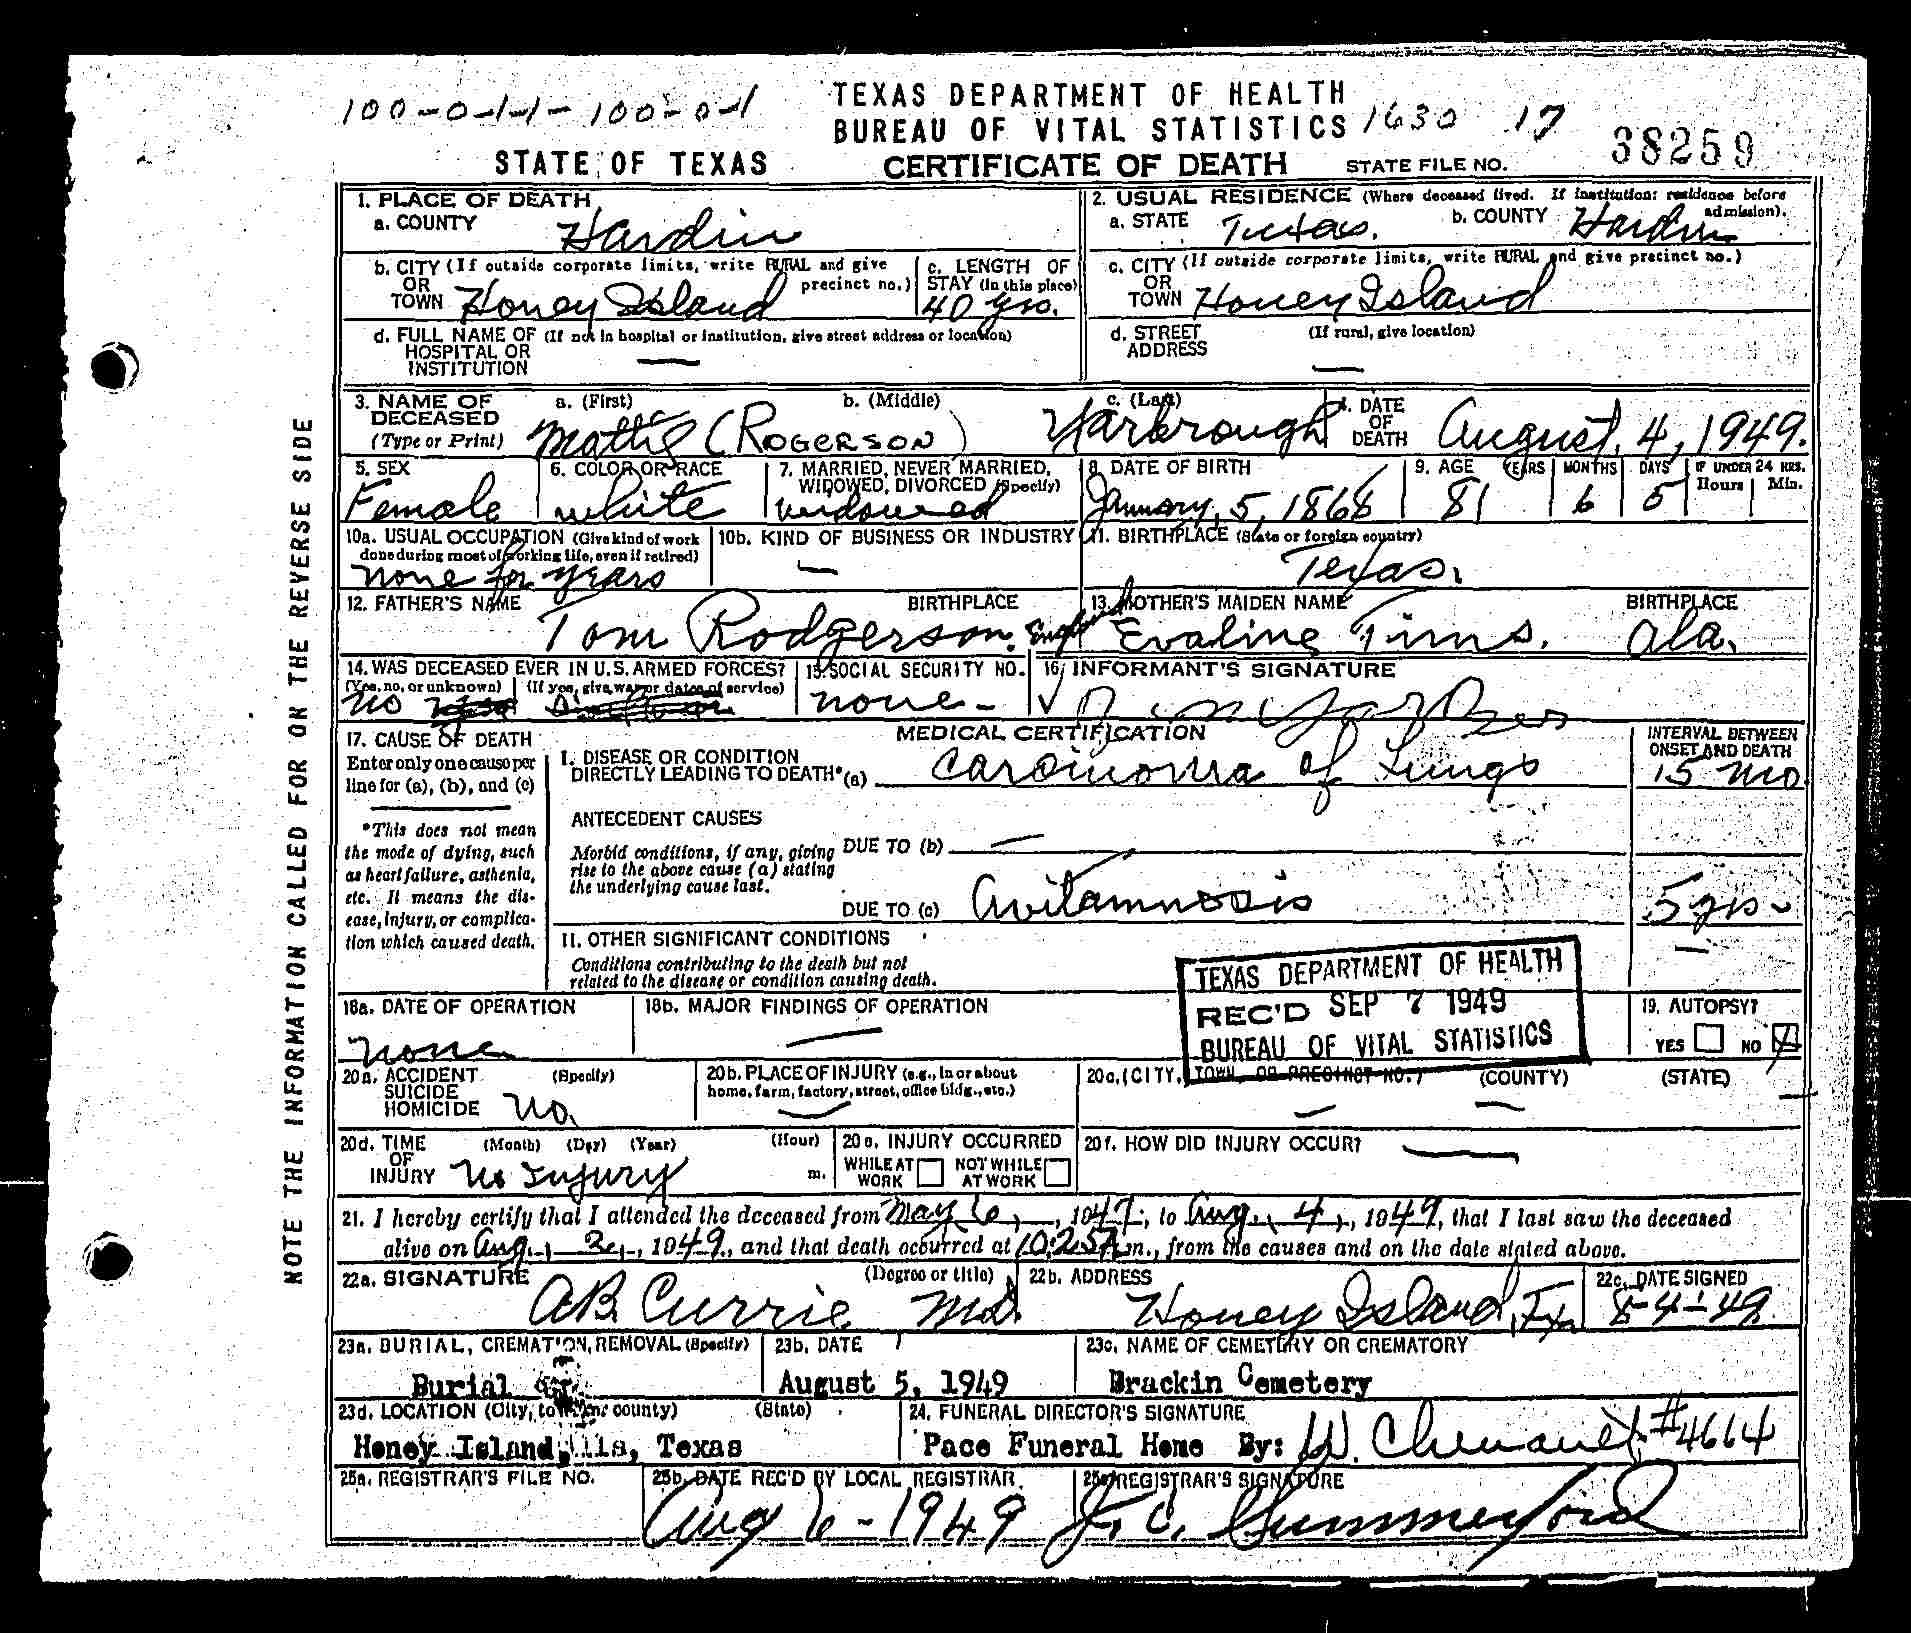 100-0-1-1- 100-0-1
TEXAS DEPARTMENT OF HEALTH
BUREAU OF VITAL STATISTICS 1630 17
38259
STATE OF TEXAS CERTIFICATE OF DEATH STATE FILE NO.
NOTE THE INFORMATION CALLED FOR ON THE REVERSE SIDE
1. PLACE OF DEATH
a. COUNTY Hardin
2. USUAL RESIDENCE (Where deceased lived. If institution: residence before admission).
a. STATE Texas. b. COUNTY Hardin
b. CITY (If outside corporate limits, write RURAL and give precinct no.)
OR TOWN Honey Island
c. LENGTH OF STAY (in this place) 40 yrs.
c. CITY (If outside corporate limits, write RURAL and give precinct no.)
OR TOWN Honey Island
d. FULL NAME OF (If not in hospital or institution, give street address or location)
HOSPITAL OR INSTITUTION —
d. STREET ADDRESS (If rural, give location) —
3. NAME OF DECEASED (Type or Print)
a. (First) b. (Middle) c. (Last)
Mattie (ROGERSON) Yarbrough
4. DATE OF DEATH August, 4, 1949.
5. SEX Female
6. COLOR OR RACE white
7. MARRIED, NEVER MARRIED, WIDOWED, DIVORCED (Specify) widowed
8. DATE OF BIRTH January, 5, 1868
9. AGE YEARS 81 MONTHS 6 DAYS 5 IF UNDER 24 HRS. Hours Min.
10a. USUAL OCCUPATION (Give kind of work done during most of working life, even if retired)
none for years
10b. KIND OF BUSINESS OR INDUSTRY —
11. BIRTHPLACE (State or foreign country) Texas.
12. FATHER'S NAME BIRTHPLACE
Tom Rodgerson. England
13. MOTHER'S MAIDEN NAME BIRTHPLACE
Evaline Tims. Ala.
14. WAS DECEASED EVER IN U.S. ARMED FORCES?
(Yes, no, or unknown) (If yes, give war or dates of service)
no
15. SOCIAL SECURITY NO. none-
16. INFORMANT'S SIGNATURE
MEDICAL CERTIFICATION
17. CAUSE OF DEATH
Enter only one cause per line for (a), (b), and (c)
*This does not mean the mode of dying, such as heart failure, asthenia, etc. It means the disease, injury, or complication which caused death.
I. DISEASE OR CONDITION DIRECTLY LEADING TO DEATH* (a) Carcinoma of Lungs
INTERVAL BETWEEN ONSET AND DEATH
15 mo.
ANTECEDENT CAUSES
Morbid conditions, if any, giving rise to the above cause (a) stating the underlying cause last.
DUE TO (b) —
DUE TO (c) Avitamnosis 5 yrs-
II. OTHER SIGNIFICANT CONDITIONS
Conditions contributing to the death but not related to the disease or condition causing death.
—
TEXAS DEPARTMENT OF HEALTH
REC'D SEP 7 1949
BUREAU OF VITAL STATISTICS
18a. DATE OF OPERATION none
18b. MAJOR FINDINGS OF OPERATION —
19. AUTOPSY? YES NO
20a. ACCIDENT SUICIDE HOMICIDE (Specify) No.
20b. PLACE OF INJURY (e.g., in or about home, farm, factory, street, office bldg., etc.) —
20c. (CITY, TOWN, OR PRECINCT NO.) (COUNTY) (STATE)
— — —
20d. TIME OF INJURY (Month) (Day) (Year) (Hour) m.
No Injury
20e. INJURY OCCURRED WHILE AT WORK NOT WHILE AT WORK
20f. HOW DID INJURY OCCUR? —
21. I hereby certify that I attended the deceased from May 6, 1947, to Aug., 4, 1949, that I last saw the deceased
alive on Aug., 2, 1949, and that death occurred at 10:25 A m., from the causes and on the date stated above.
22a. SIGNATURE (Degree or title) AB. Currie MD.
22b. ADDRESS Honey Island, Tx.
22c. DATE SIGNED 8-4-49.
23a. BURIAL, CREMATION, REMOVAL (Specify) Burial
23b. DATE August 5, 1949
23c. NAME OF CEMETERY OR CREMATORY Brackin Cemetery
23d. LOCATION (City, town, or county) (State)
Honey Island, Texas
24. FUNERAL DIRECTOR'S SIGNATURE
Pace Funeral Home By: #4664
25a. REGISTRAR'S FILE NO.
25b. DATE REC'D BY LOCAL REGISTRAR Aug 6-1949
25c. REGISTRAR'S SIGNATURE J. C. Summerford